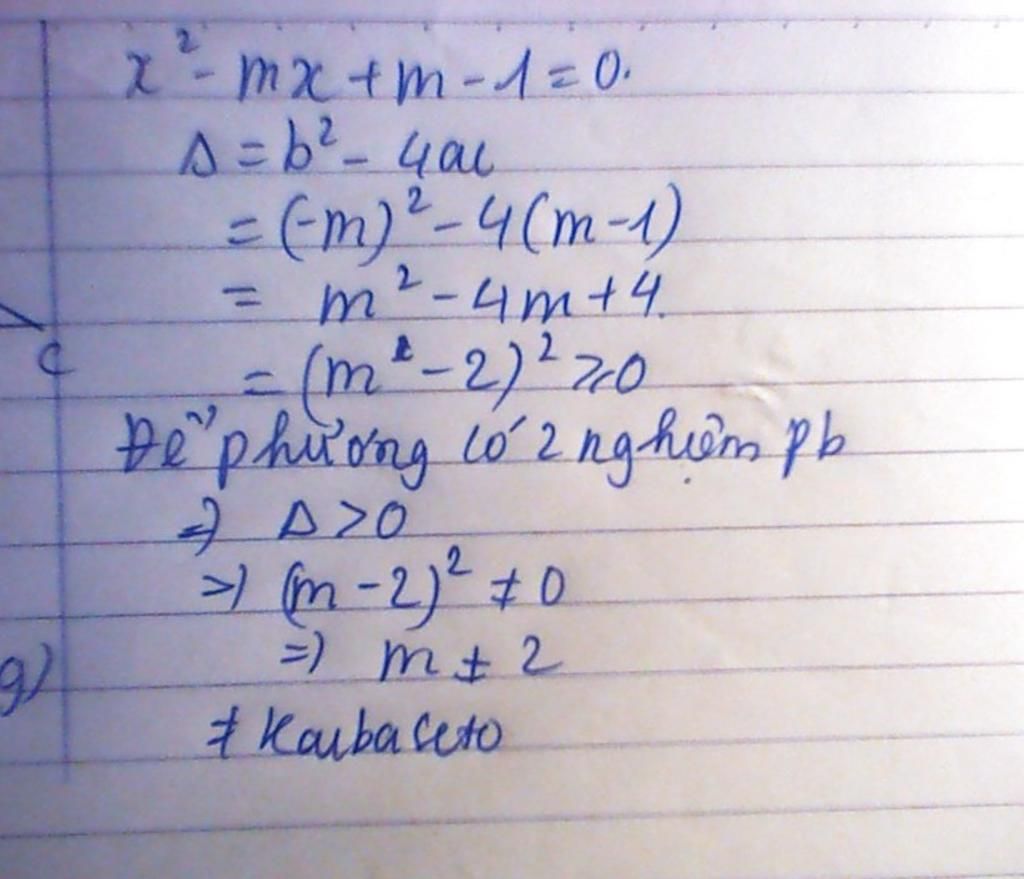 x² - mx + m - 1 = 0.
Δ = b² - 4ac
= (-m)² - 4(m-1)
= m² - 4m + 4.
c
= (m - 2)² ⩾ 0
Để phương có 2 nghiệm pb
=> Δ > 0
=> (m - 2)² ≠ 0
=> m ≠ 2
g)
# Kaubaceto